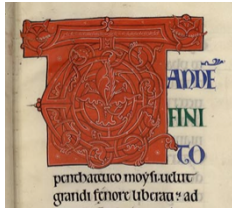 TANDE᷑
FINI
TO
pentathauco moysi. uelut
grandi fenore liberati: ad